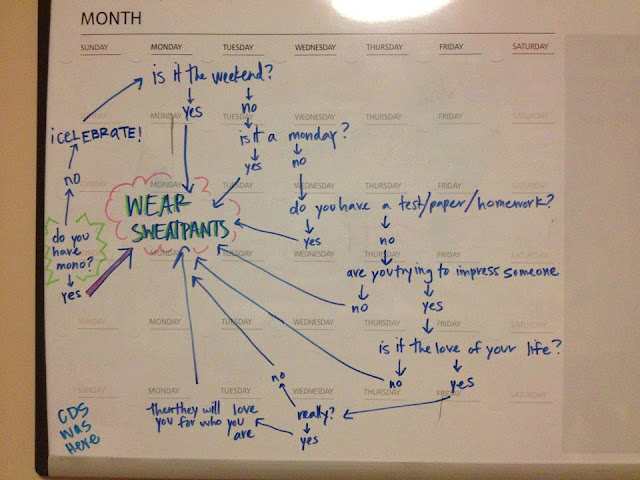 MONTH
SUNDAY MONDAY TUESDAY WEDNESDAY THURSDAY FRIDAY SATURDAY
is it the weekend?
yes no
MONDAY WEDNESDAY THURSDAY FRIDAY SATURDAY
¡CELEBRATE!
is it a monday?
yes no
no
MONDAY TUESDAY WEDNESDAY THURSDAY FRIDAY SATURDAY
WEAR
SWEATPANTS
do you have a test/paper/homework?
yes no
do you
have
mono?
yes
MONDAY TUESDAY WEDNESDAY THURSDAY FRIDAY SATURDAY
are you trying to impress someone
no yes
SUNDAY MONDAY TUESDAY WEDNESDAY THURSDAY FRIDAY SATURDAY
is it the love of your life?
no yes
SUNDAY MONDAY TUESDAY WEDNESDAY THURSDAY FRIDAY SATURDAY
really?
no
yes
then they will love
you for who you
are
CDS
was
Here